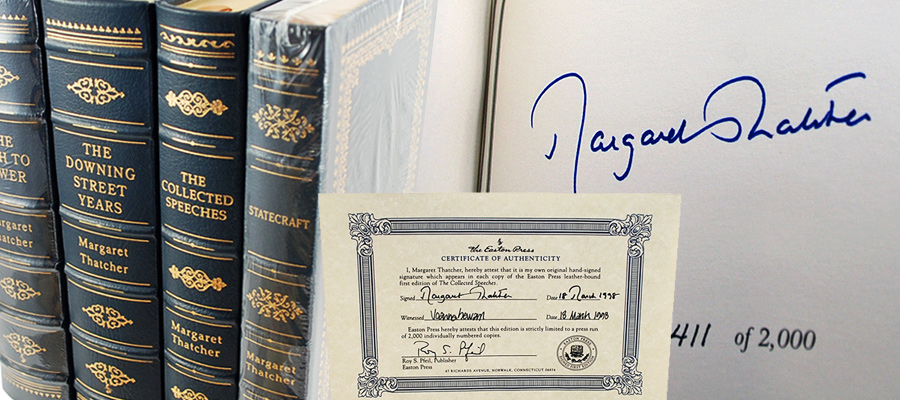 THE
DOWNING
STREET
YEARS
Margaret
Thatcher
THE
COLLECTED
SPEECHES
Margaret
Thatcher
STATECRAFT
Margaret
Thatcher
Margaret Thatcher
411 of 2,000
the Easton Press
CERTIFICATE OF AUTHENTICITY
I, Margaret Thatcher, hereby attest that it is my own original hand-signed
signature which appears in each copy of the Easton Press leather-bound
first edition of The Collected Speeches.
Signed Margaret Thatcher Date 18 March 1998
Witnessed Date 18 March 1998
Easton Press hereby attests that this edition is strictly limited to a press run
of 2,000 individually numbered copies.
Roy S. Pfeil
Roy S. Pfeil, Publisher
Easton Press
47 RICHARDS AVENUE, NORWALK, CONNECTICUT 06856